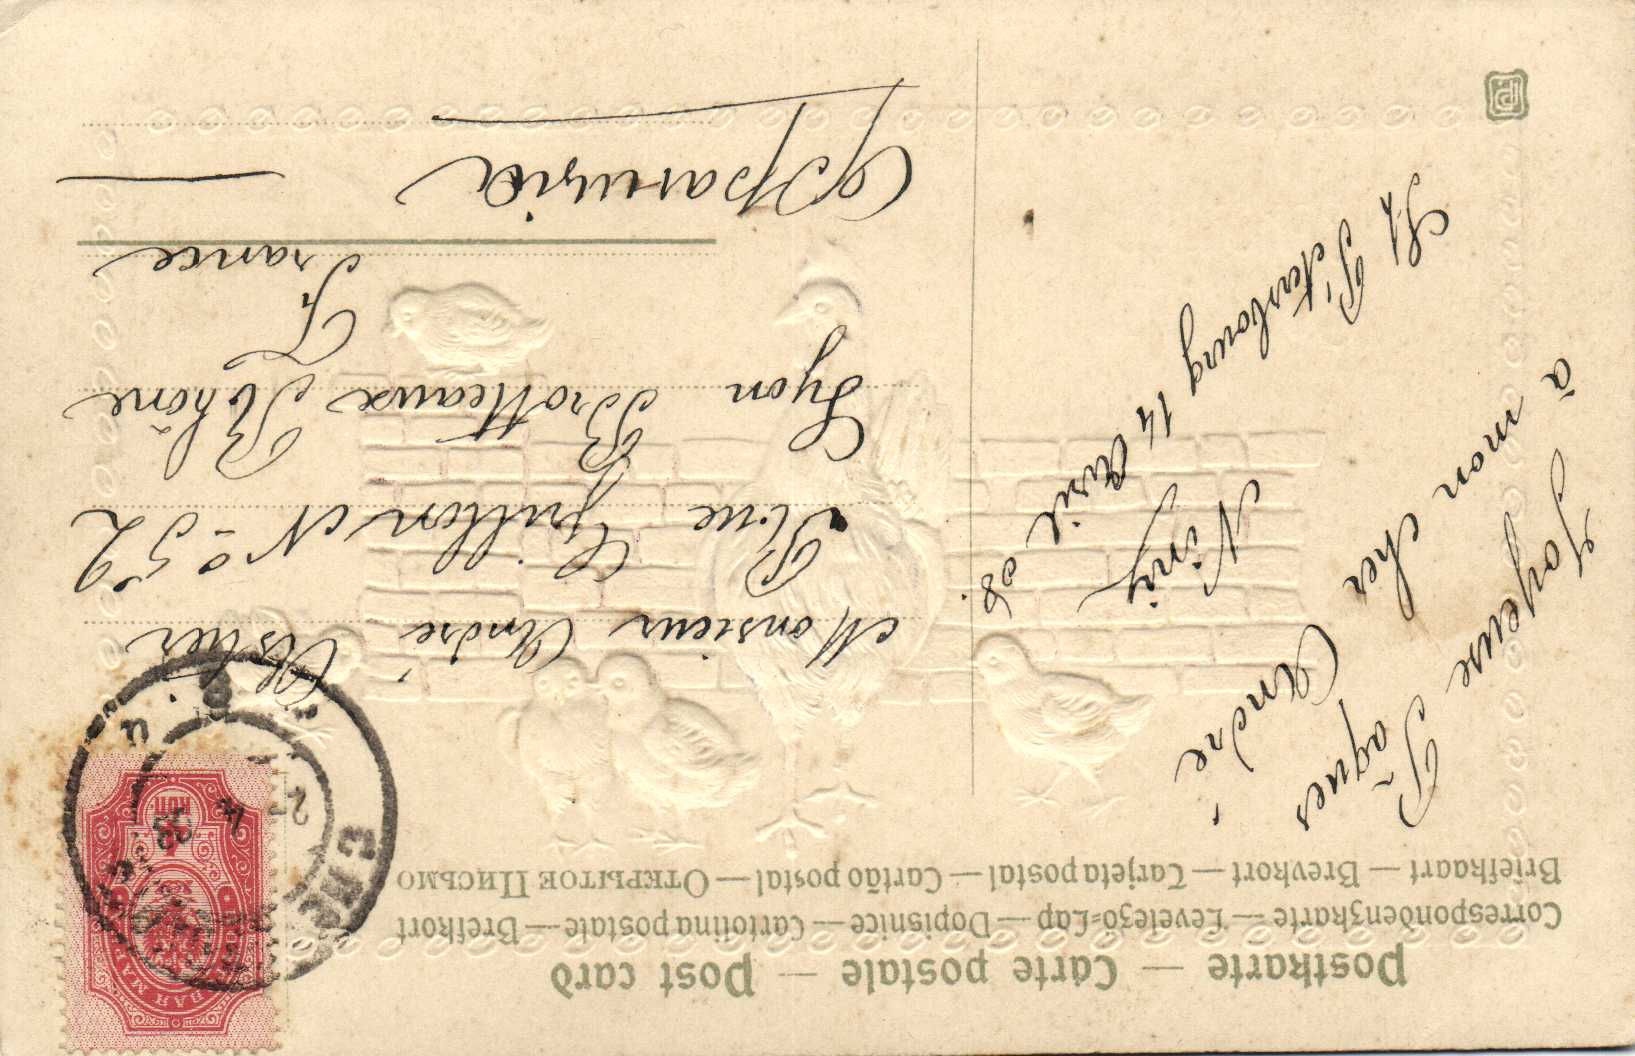 Postkarte — Carte postale — Post card
Correspondenzkarte — Levelező-Lap — Dopisnice — Cartolina postale — Brefkort
Briefkaart — Brevkort — Tarjeta postal — Cartão postal — Открытое Письмо
Joyeuse Pâques
à mon cher
André
Niny
St Pétersbourg 14 Avril 08.
Monsieur André
Rue Grillon No 52
Lyon Brotteaux Rhône
France
Франция